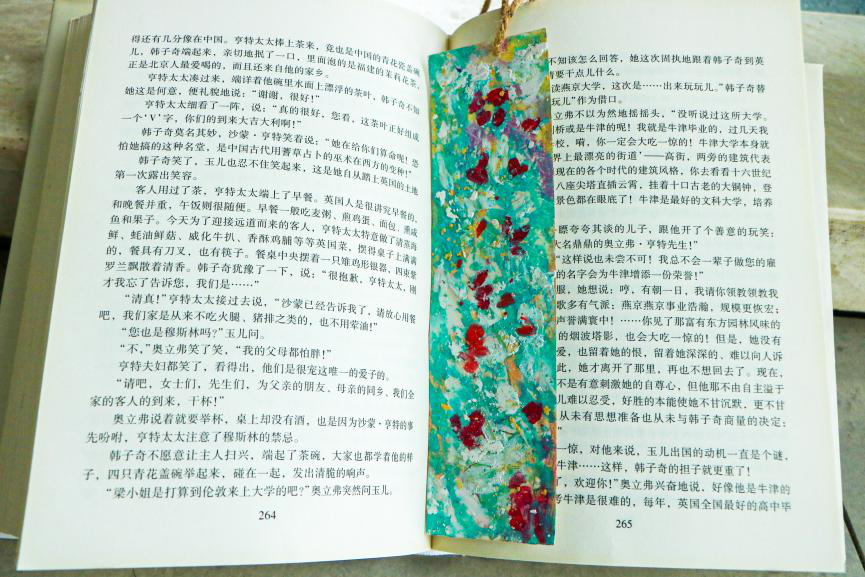 得还有几分像在中国。亨特太太捧上茶来，竟也是中国的青花瓷盖碗
儿，韩子奇端起来，亲切地抿了一口，里面泡的是福建的茉莉花茶，
正是北京人最爱喝的，而且还来自他的家乡。
亨特太太凑过来，端详着他碗里水面上漂浮的茶叶，韩子奇不知
她这是何意，便礼貌地说：“谢谢，很好！”
亨特太太细看了一阵，说：“真的很好，您看，这茶叶正好组成
一个‘V’字，你们的到来大吉大利啊！”
韩子奇莫名其妙，沙蒙·亨特笑着说：“她在给你们算命呢！恐
怕她搞的这种名堂，是中国古代用蓍草占卜的巫术在西方的变种！”
韩子奇笑了，玉儿也忍不住笑起来，这是她自从踏上英国的土地
第一次露出笑容。
客人用过了茶，亨特太太端上了早餐。英国人是很讲究早餐的，
和晚餐并重，午饭则很随便。早餐一般吃麦粥、煎鸡蛋、面包、熏咸
鱼和果子。今天为了迎接远道而来的客人，亨特太太特意做了清蒸海
鲜、蚝油鲜菇、威化牛扒、香酥鸡脯等等英国菜，摆得桌子上满满
的，餐具有刀叉，也有筷子。餐桌中央摆着一只雉鸡形银器，四束紫
罗兰飘散着清香。韩子奇犹豫了一下，说：“很抱歉，亨特太太，刚
才我忘了告诉您，我们是……”
“清真！”亨特太太接过去说，“沙蒙已经告诉我了，请放心用餐
吧，我们家是从来不吃火腿、猪排之类的，也不用荤油！”
“您也是穆斯林吗？”玉儿问。
“不，”奥立弗笑了笑，“我的父母都怕胖！”
亨特夫妇都笑了，看得出，他们是很宠这唯一的爱子的。
“请吧，女士们，先生们，为父亲的朋友、母亲的同乡、我们全
家的客人的到来，干杯！”
奥立弗说着就要举杯，桌上却没有酒，也是因为沙蒙·亨特的事
先吩咐，亨特太太注意了穆斯林的禁忌。
韩子奇不愿意让主人扫兴，端起了茶碗，大家也都学着他的样
子，四只青花盖碗举起来，碰在一起，发出清脆的响声。
“梁小姐是打算到伦敦来上大学的吧？”奥立弗突然问玉儿。
264
不知该怎么回答，她这次固执地跟着韩子奇到英
要干点儿什么。
读燕京大学，这次是……出来玩玩儿。”韩子奇替
玩儿”作借口。
立弗不以为然地摇摇头，“没听说过这所大学。
桥或是牛津的呢！我就是牛津毕业的，过几天我
校，嗬，你一定会大吃一惊的！牛津大学本身就
界上最漂亮的街道’——高街，两旁的建筑代表
现在的各个时代的建筑风格，你去看看十六世纪
八座尖塔直插云霄，挂着十口古老的大铜钟，登
景色都在眼底了！牛津是最好的文科大学，培养
瞟夸夸其谈的儿子，跟他开了个善意的玩笑：
大名鼎鼎的奥立弗·亨特先生！”
“这样说也未尝不可！我总不会一辈子做您的雇
的名字会为牛津增添一份荣誉！”
服，她想说：哼，有朝一日，我请你领教领教我
歌多有气派；燕京燕京事业浩瀚，规模更恢宏；
声誉满寰中！……你见了那富有东方园林风味的
的烟波塔影，也会大吃一惊的！但是，她没有
爱，也留着她的恨，留着她深深的、难以向人诉
此，她才离开了那里，再也不想回去了。现在，
不是有意刺激她的自尊心，但他那不由自主溢于
儿难以忍受，好胜的本能使她不甘沉默，更不甘
从未有思想准备也从未与韩子奇商量的决定：
”
一惊，对他来说，玉儿出国的动机一直是个谜，
牛津……这样，韩子奇的担子就更重了！
了，欢迎你！”奥立弗兴奋地说，好像他是牛津的
牛津是很难的，每年，英国全国最好的高中毕
265